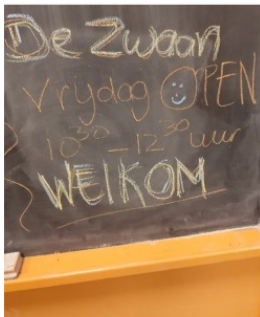 De Zwaan
Vrijdag OPEN
10³⁰ - 12³⁰ uur
WELKOM